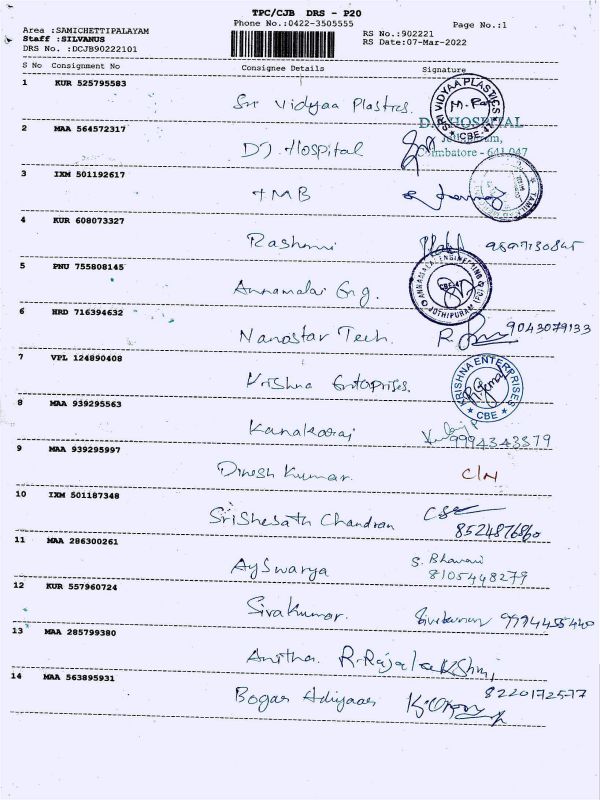 TPC/CJB DRS - P20
Phone No.:0422-3505555
Page No.:1
Area :SAMICHETTIPALAYAM
Staff :SILVANUS
DRS No. :DCJB90222101
RS No.:902221
RS Date:07-Mar-2022
S No Consignment No Consignee Details Signature
1 KUR 525795583
Sri Vidyaa Plastics.
SRI VIDYAA PLASTICS
CBE-47
2 MAA 564572317
DJ Hospital
HOSPITAL
3 IXM 501192617
TMB
4 KUR 608073327
Rashmi
5 PNU 755808145
Annamalai Eng.
ANNAMALAI ENGINEERING
CBE-47
JOTHIPURAM (PO)
6 HRD 716394632
Nanostar Tech. 9043079133
7 VPL 124890408
Krishna Enterprises.
KRISHNA ENTERPRISES
CBE
8 MAA 939295563
Kanakaraj 9994343379
9 MAA 939295997
Dinesh Kumar. C/N
10 IXM 501187348
Srishesath Chandran
11 MAA 286300261
Ayswarya S. Bhavani
8105448279
12 KUR 557960724
Sivakumar. Sivakumar
13 MAA 285799380
Anitha. R. Rajalakshmi
14 MAA 563895931
Bogar Adiyaar 8220172577